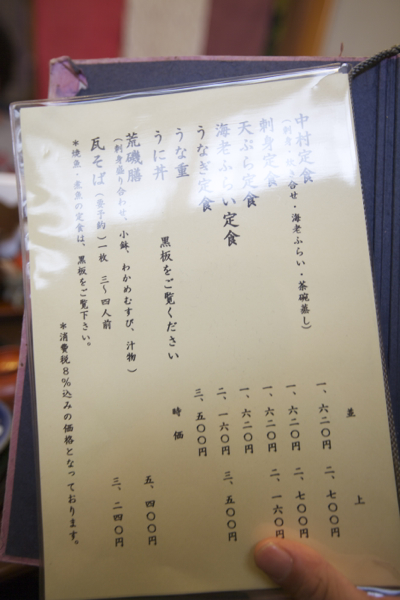 並 上
中村定食 一、六二〇円 二、七〇〇円
(刺身・き合せ・海老ふらい・茶碗蒸し)
刺身定食 一、六二〇円 二、七〇〇円
天ぷら定食 一、六二〇円 二、一六〇円
海老ふらい定食 一、六二〇円
うなぎ定食 二、一六〇円 三、五〇〇円
うな重 三、五〇〇円
うに丼 黒板をご覧ください 時価
荒磯膳 五、四〇〇円
(刺身盛り合わせ、小鉢、わかめむすび、汁物)
瓦そば(要予約)一枚 三〜四人前 三、二四〇円
*焼魚・煮魚の定食は、黒板をご覧下さい。
*消費税8%込みの価格となっております。